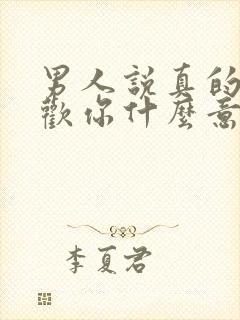 男人說真的
歡你什麼意
李夏君